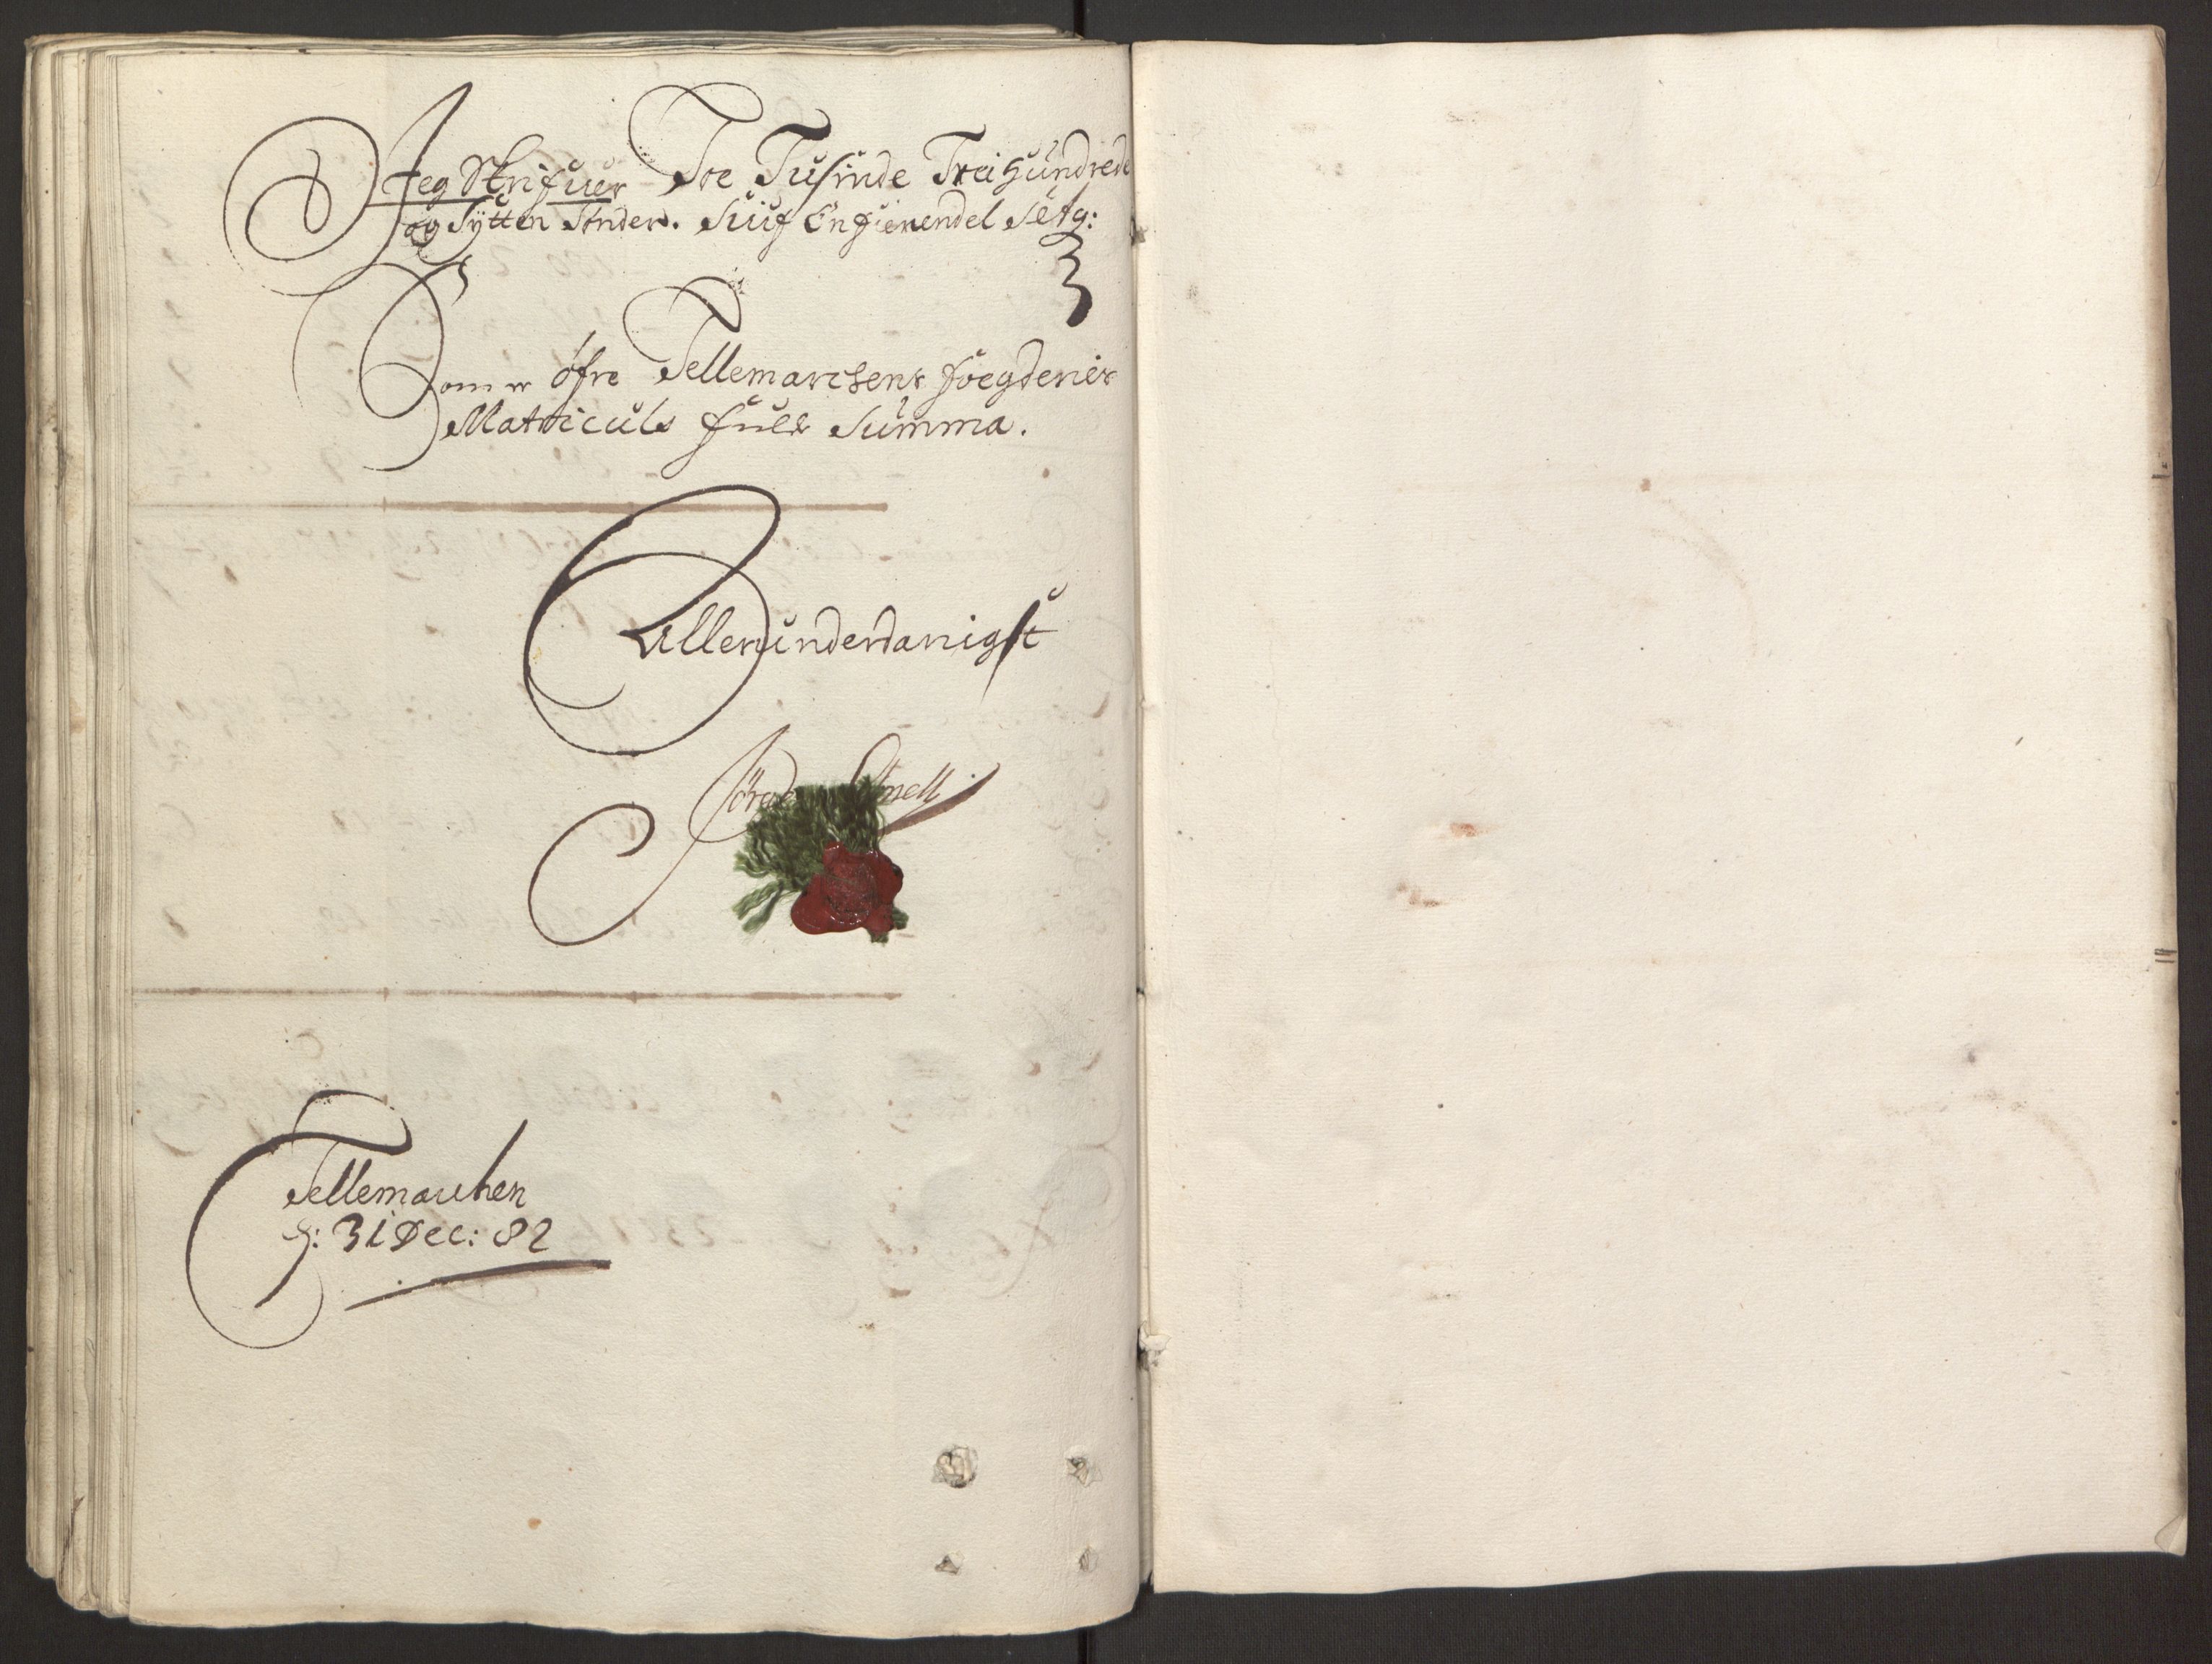 Jeg Skrifuer Toe Tusinde Trei Hundrede
og Sÿtten Huder. Siuf En fierendel Setg:
Som er öfre Tellemarchens foegderies
Matriculs fulde Summa.
Allerunderdanigst
Tellemarchen
d: 31 Dec: 82